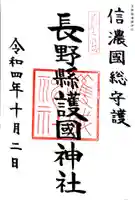 信濃國総守護
長野縣護國神社
令和四年十月二日